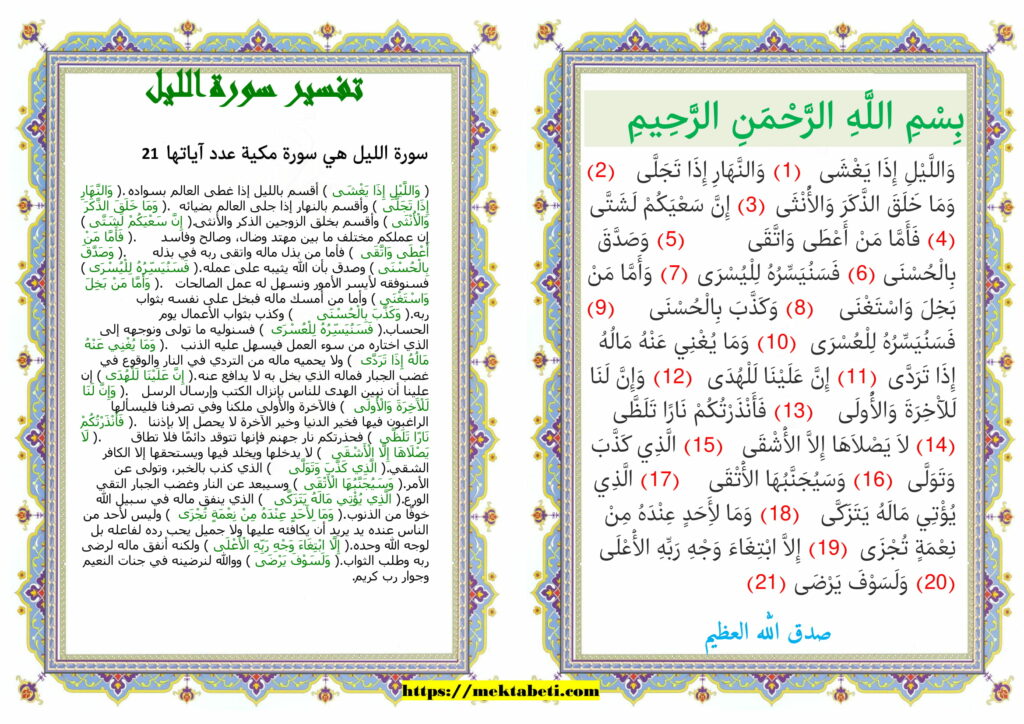 بِسْمِ اللَّهِ الرَّحْمَنِ الرَّحِيمِ
وَاللَّيْلِ إِذَا يَغْشَى (1) وَالنَّهَارِ إِذَا تَجَلَّى (2)
وَمَا خَلَقَ الذَّكَرَ وَالأُنْثَى (3) إِنَّ سَعْيَكُمْ لَشَتَّى
(4) فَأَمَّا مَنْ أَعْطَى وَاتَّقَى (5) وَصَدَّقَ
بِالْحُسْنَى (6) فَسَنُيَسِّرُهُ لِلْيُسْرَى (7) وَأَمَّا مَنْ
بَخِلَ وَاسْتَغْنَى (8) وَكَذَّبَ بِالْحُسْنَى (9)
فَسَنُيَسِّرُهُ لِلْعُسْرَى (10) وَمَا يُغْنِي عَنْهُ مَالُهُ
إِذَا تَرَدَّى (11) إِنَّ عَلَيْنَا لَلْهُدَى (12) وَإِنَّ لَنَا
لَلآخِرَةَ وَالأُولَى (13) فَأَنْذَرْتُكُمْ نَارًا تَلَظَّى
(14) لاَ يَصْلاَهَا إِلاَّ الأَشْقَى (15) الَّذِي كَذَّبَ
وَتَوَلَّى (16) وَسَيُجَنَّبُهَا الأَتْقَى (17) الَّذِي
يُؤْتِي مَالَهُ يَتَزَكَّى (18) وَمَا لأَحَدٍ عِنْدَهُ مِنْ
نِعْمَةٍ تُجْزَى (19) إِلاَّ ابْتِغَاءَ وَجْهِ رَبِّهِ الأَعْلَى
(20) وَلَسَوْفَ يَرْضَى (21)
صدق الله العظيم
تفسير سورة الليل
سورة الليل هي سورة مكية عدد آياتها 21
( وَاللَّيْلِ إِذَا يَغْشَى ) أقسم بالليل إذا غطى العالم بسواده.( وَالنَّهَارِ
إِذَا تَجَلَّى ) وأقسم بالنهار إذا جلى العالم بضيائه .( وَمَا خَلَقَ الذَّكَرَ
وَالْأُنْثَى ) وأقسم بخلق الزوجين الذكر والأنثى.( إِنَّ سَعْيَكُمْ لَشَتَّى )
إن عملكم مختلف ما بين مهتد وضال، وصالح وفاسد .( فَأَمَّا مَنْ
أَعْطَى وَاتَّقَى ) فأما من بذل ماله واتقى ربه في بذله .( وَصَدَّقَ
بِالْحُسْنَى ) وصدق بأن الله يثيبه على عمله.( فَسَنُيَسِّرُهُ لِلْيُسْرَى )
فسنوفقه لأيسر الأمور ونسهل له عمل الصالحات .( وَأَمَّا مَنْ بَخِلَ
وَاسْتَغْنَى ) وأما من أمسك ماله فبخل على نفسه بثواب
ربه.( وَكَذَّبَ بِالْحُسْنَى ) وكذب بثواب الأعمال يوم
الحساب.( فَسَنُيَسِّرُهُ لِلْعُسْرَى ) فسنوليه ما تولى ونوجهه إلى
الذي اختاره من سوء العمل فيسهل عليه الذنب .( وَمَا يُغْنِي عَنْهُ
مَالُهُ إِذَا تَرَدَّى ) ولا يحميه ماله من التردي في النار والوقوع في
غضب الجبار فماله الذي بخل به لا يدافع عنه.( إِنَّ عَلَيْنَا لَلْهُدَى ) إن
علينا أن نبين الهدى للناس بإنزال الكتب وإرسال الرسل .( وَإِنَّ لَنَا
لَلْآخِرَةَ وَالْأُولَى ) فالآخرة والأولى ملكنا وفي تصرفنا فليسألها
الراغبون فيها فخير الدنيا وخير الآخرة لا يحصل إلا بإذننا .( فَأَنْذَرْتُكُمْ
نَارًا تَلَظَّى ) فحذرتكم نار جهنم فإنها تتوقد دائمًا فلا تطاق .( لَا
يَصْلَاهَا إِلَّا الْأَشْقَى ) لا يدخلها ويخلد فيها ويستحقها إلا الكافر
الشقي.( الَّذِي كَذَّبَ وَتَوَلَّى ) الذي كذب بالخبر، وتولى عن
الأمر.( وَسَيُجَنَّبُهَا الْأَتْقَى ) وسيبعد عن النار وغضب الجبار التقي
الورع.( الَّذِي يُؤْتِي مَالَهُ يَتَزَكَّى ) الذي ينفق ماله في سبيل الله
خوفًا من الذنوب.( وَمَا لِأَحَدٍ عِنْدَهُ مِنْ نِعْمَةٍ تُجْزَى ) وليس لأحد من
الناس عنده يد يريد أن يكافئه عليها ولا جميل يحب رده لفاعله بل
لوجه الله وحده.( إِلَّا ابْتِغَاءَ وَجْهِ رَبِّهِ الْأَعْلَى ) ولكنه أنفق ماله لرضى
ربه وطلب الثواب.( وَلَسَوْفَ يَرْضَى ) ووالله لنرضينه في جنات النعيم
وجوار رب كريم.
https://mektabeti.com